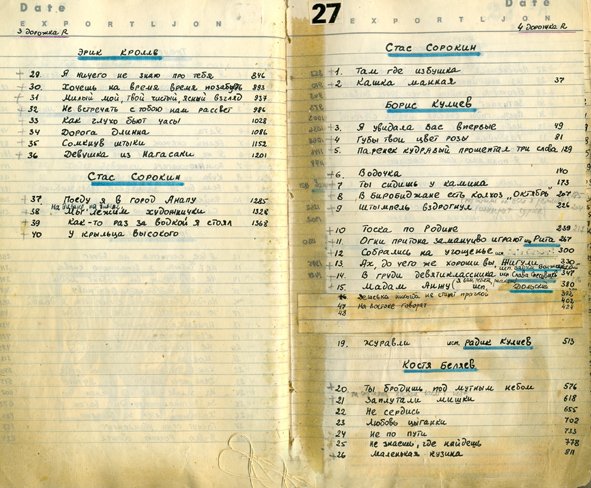 Date
EXPORTLJON
3 Дорожка R
Эрик Кролле
+ 29. Я ничего не знаю про тебя 846
+ 30. Хочешь на время время позабудь 893
+ 31 Милый мой, твой чистый, ясный взгляд 937
32 Не встречать с тобою нам рассвет 986
33 Как глухо бьют часы 1028
34 Дорога длинна 1086
35 Сомкнув штыки 1152
36 Девушка из Нагасаки 1201
Стас Сорокин
+ 37. Поеду я в город Анапу 1285
+ 38 Мы лежим художнички 1328
+ 39 Как-то раз за водкой я стоял 1368
+ 40 У крыльца высокого
27
Date
EXPORTLJON
4 Дорожка R
Стас Сорокин
+ 1. Там где избушка
+ 2 Кашка манная 37
Борис Кулиев
+ 3. Я увидала Вас впервые 49
+ 4 Губы твои цвет розы 81
+ 5. Паренек кудрявый прошептал три слова 129
+ 6. Водочка 140
+ 7 Ты сидишь у камина 173
+ 8 В Биробиджане есть колхоз "Октябрь" 207
+ 9 Штемпель вздрогнул 226
+ 10 Тоска по Родине 239
+ 11 Огни притона заманчиво играют исп. Рита 267
12 Собрались на угощенье исп 300
13 Ах, до чего же хороши вы, Жигули 330
+ 14. В груди девятиклассника исп. 347
+ 15. Мадам Анжу исп. 380
16 никогда не стану 392
47 На востоке говорят 402
48 424
19. Журавли исп. Радик Кулиев 513
Костя Беляев
+ 20. Ты бродишь под мутным небом 576
+ 21 Заплутали мишки 618
22 Не сердись 655
23 Любовь цыганки 702
24 Не по пути 733
+ 25 Не знаешь, где найдешь 778
+ 26 Маленькая кузина 811